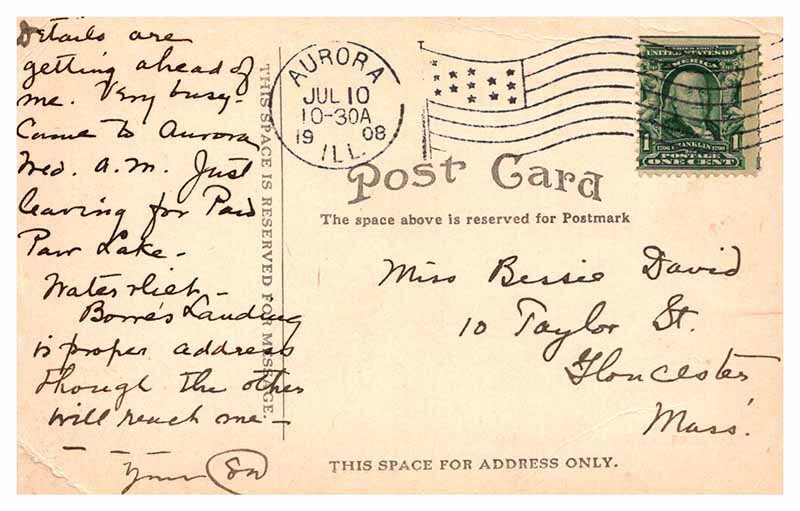 Details are
getting ahead of
me. Very busy -
Came to Aurora
Wed. a.m. Just
leaving for Paw
Paw Lake -
Watervliet -
Landing
is proper address
though the other
will reach me -
THIS SPACE IS RESERVED FOR MESSAGE.
AURORA
JUL 10
10-30A
19 08
ILL.
UNITED STATES OF
AMERICA
1 FRANKLIN 1
POSTAGE
ONE CENT
Post Card
The space above is reserved for Postmark
Miss Bessie David
10 Taylor St.
Gloucester
Mass.
THIS SPACE FOR ADDRESS ONLY.